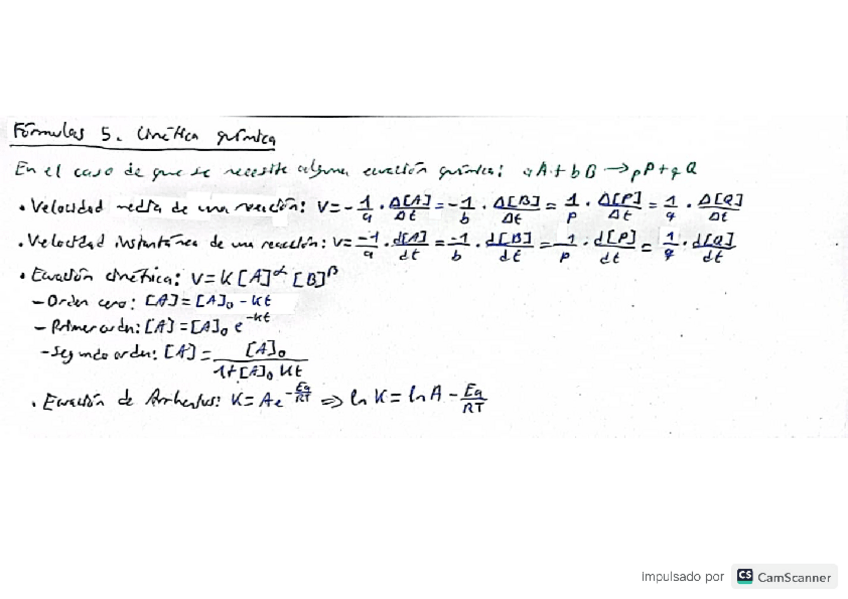 Fórmulas 5. Cinética química
En el caso de que se necesite alguna ecuación química: aA + bB → pP + qQ
• Velocidad media de una reacción: V = -1/a · Δ[A]/Δt = -1/b · Δ[B]/Δt = 1/p · Δ[P]/Δt = 1/q · Δ[Q]/Δt
• Velocidad instantánea de una reacción: V = -1/a · d[A]/dt = -1/b · d[B]/dt = 1/p · d[P]/dt = 1/q · d[Q]/dt
• Ecuación cinética: V = K[A]^α [B]^β
- Orden cero: [A] = [A]₀ - Kt
- Primer orden: [A] = [A]₀ e^-Kt
- Segundo orden: [A] = [A]₀ / 1 + [A]₀ Kt
• Ecuación de Arrhenius: K = Ae^-Ea/RT ⇒ ln K = ln A - Ea/RT
Impulsado por CS CamScanner